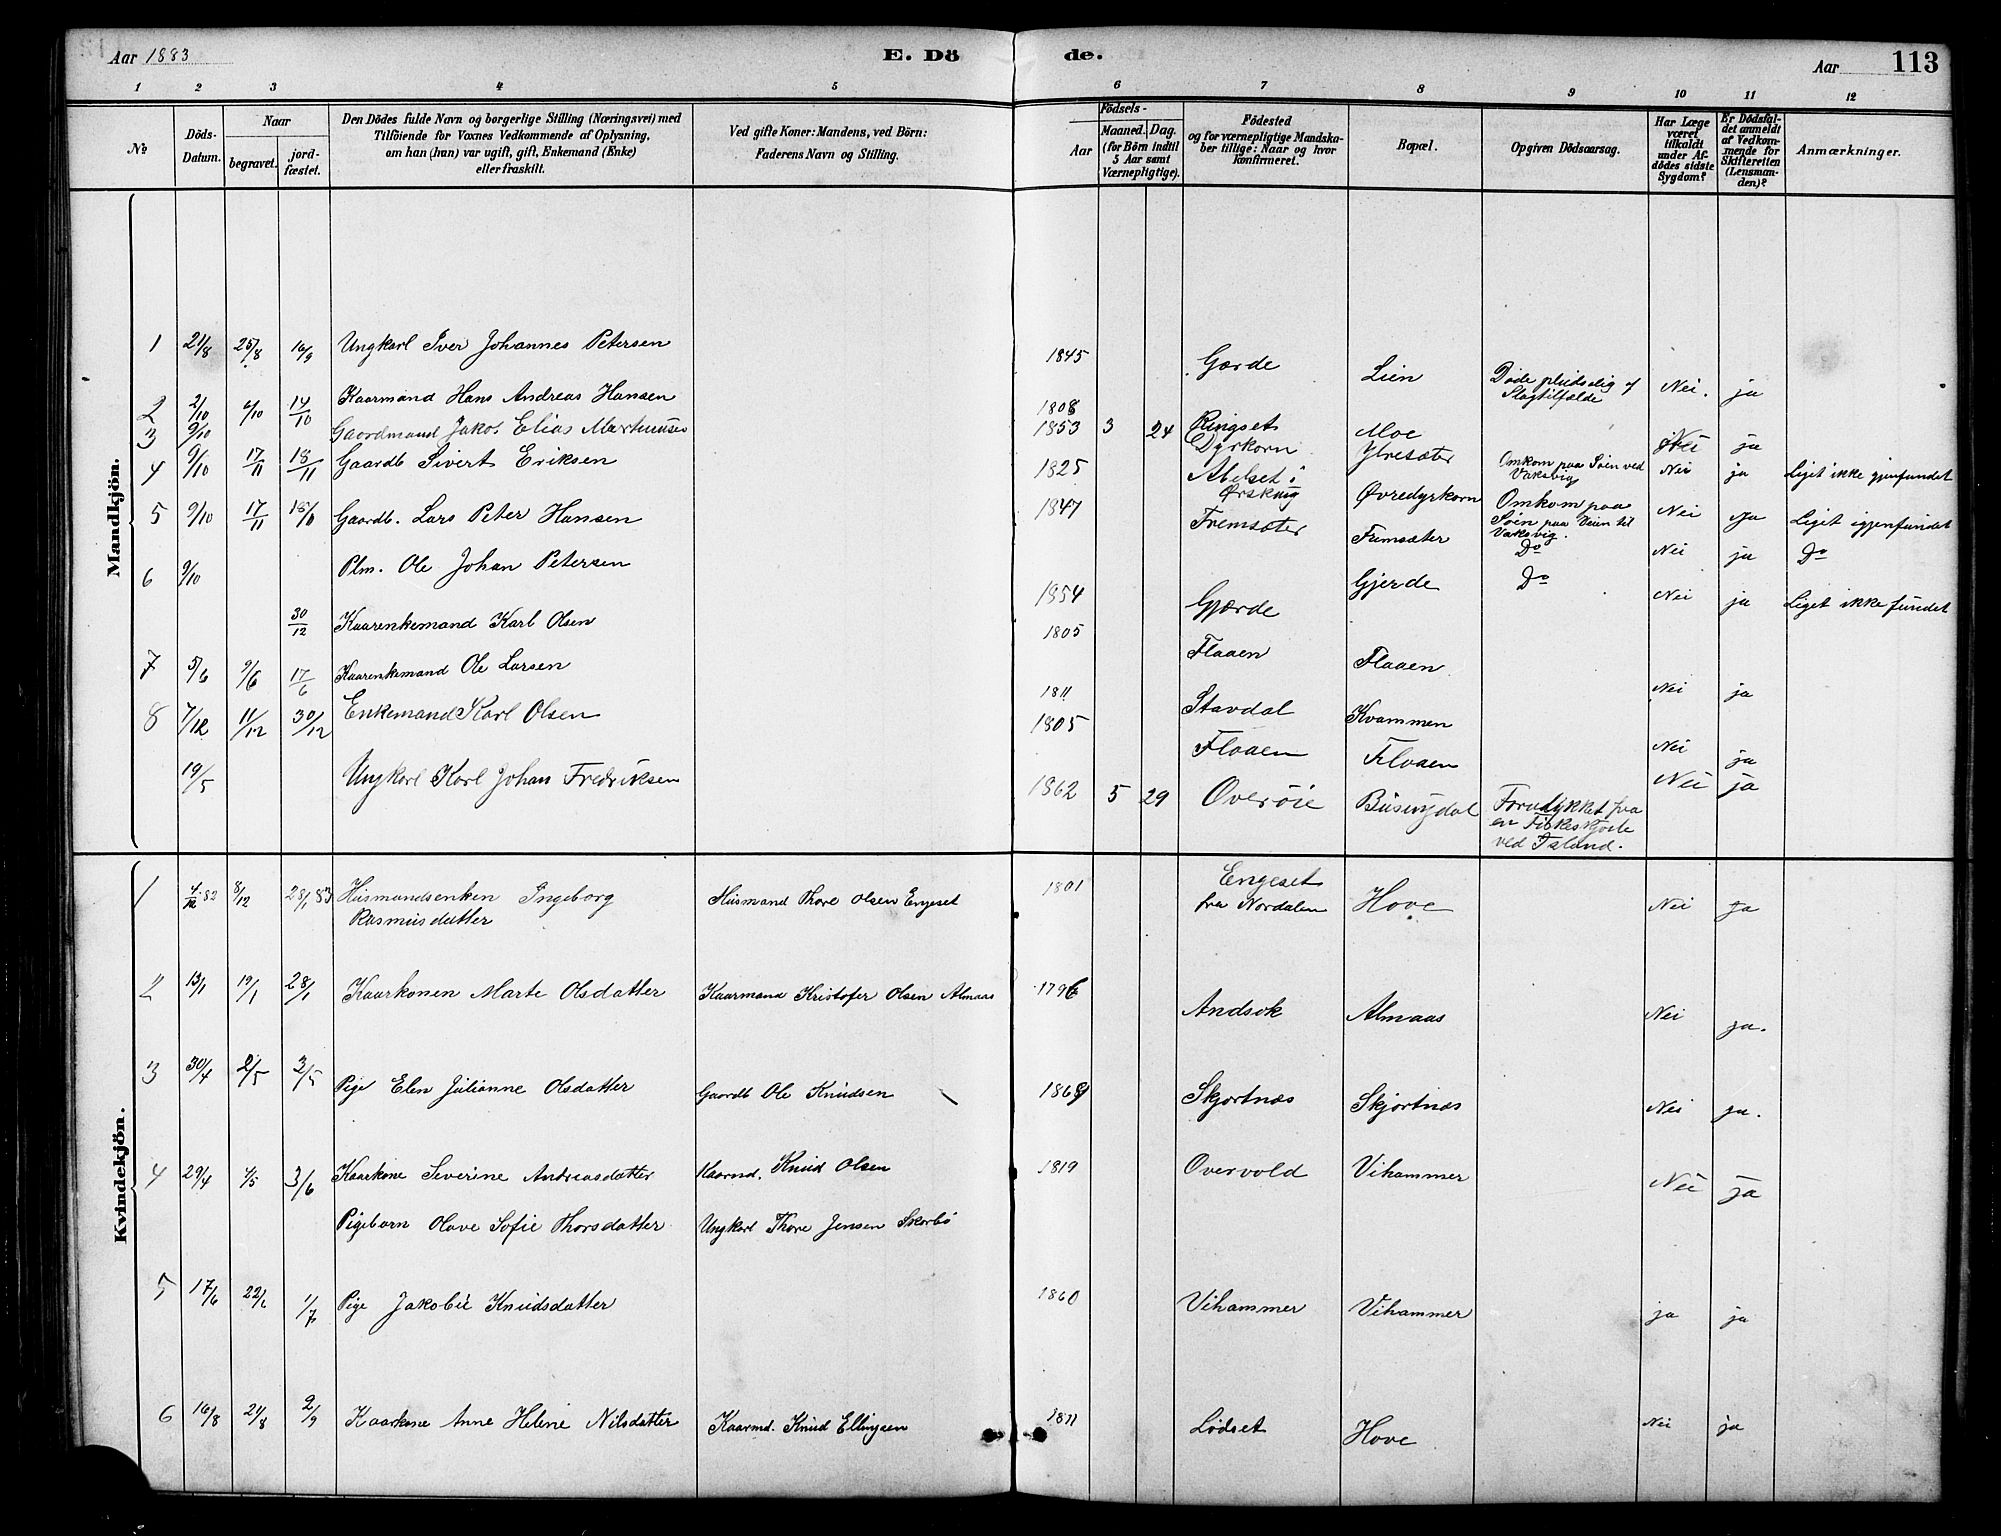 Aar 1883
E. Dö
de.
Aar
113
1 2 3 4 5 6 7 8 9 10 11 12
No
Döds-Datum.
Naar
begravet.
jordfæstet.
Den Dödes fulde Navn og borgerlige Stilling (Næringsvei) med
Tilföiende for Voxnes Vedkommende af Oplysning,
om han (hun) var ugift, gift, Enkemand (Enke)
eller fraskilt.
Ved gifte Koner: Mandens, ved Börn:
Faderens Navn og Stilling.
Födsels-
Aar
Maaned. Dag.
(for Börn indtil
5 Aar samt
Værnepligtige).
Födested
og for værnepligtige Mandska-
ber tillige: Naar og hvor
konfirmeret.
Bopæl.
Opgiven Dödsaarsag.
Har Læge
været
tilkaldt
under Af-
dödes sidste
Sygdom?
Er Dödsfal-
det anmeldt
af Vedkom-
mende for
Skifteretten
(Lensman-
den)?
Anmærkninger.
Mandkjön.
1 21/8 25/8 16/9 Ungkarl Iver Johannes Petersen 1845 Gærde Lien Døde pludselig af Slagtilfælde Nei. ja
2 2/10 6/10 14/10 Kaarmand Hans Andreas Hansen 1808 Ringset Moe Nei ja
3 9/10 Gaardmand Jakob Elias Marthinusen 1853 3 24 Dyrkorn Ytresæter Omkom paa Søen ved Vaksvig Nei ja Liget ikke gjenfundet
4 9/10 17/11 18/11 Gaardb Sivert Eriksen 1825 Abelset i Ørskoug Øvredyrkorn Omkom paa Søen paa Veien til Vaksvig. Nei Ja Liget igjenfundet
5 9/10 17/11 18/11 Gaardb. Lars Peter Hansen 1847 Fremsæter Fremsæter Do Nei ja Do
6 9/10 Plm. Ole Johan Petersen 1854 Gjærde Gjerde Do Nei ja Liget ikke fundet
30/12 Kaarenkemand Karl Olsen 1805 Flaaen Flaaen
7 5/6 9/6 17/6 Kaarenkemand Ole Larsen 1811 Stavdal Kvammen Nei ja
8 7/12 11/12 30/12 Enkemand Karl Olsen 1805 Flaaen Flaaen Nei ja
19/5 Ungkarl Karl Johan Fredriksen 1862 5 29 Overøie Busengdal Forulykket fra en Fiskeskøite ved Island. Nei ja
Kvindekjön.
1 4/12 82 8/12 28/1 83 Husmandsenken Ingeborg Rasmusdatter Husmand Thore Olsen Engeset 1801 Engeset fra Nordalen Hove Nei Ja
2 13/1 19/1 28/1 Kaarkonen Marte Olsdatter Kaarmand Kristofer Olsen Almaas 1796 Andsok Almaas Nei ja.
3 30/4 2/5 3/5 Pige Elen Julianne Olsdatter Gaardb Ole Knudsen 1869 Skjortnæs Skjortnæs Nei ja.
4 29/4 4/5 3/6 Kaarkone Severine Andreasdatter Kaarmd. Knud Olsen 1819 Overvold Vihammer Nei ja
Pigebarn Olave Sofie Thorsdatter Ungkarl Thore Jensen Skorbø
5 17/6 22/6 1/7 Pige Jakobie Knudsdatter 1860 Vihammer Vihammer ja ja
6 16/8 21/8 2/9 Kaarkone Anne Heline Nilsdatter Kaarmd. Knud Ellingsen 1811 Lødset Hove Nei ja